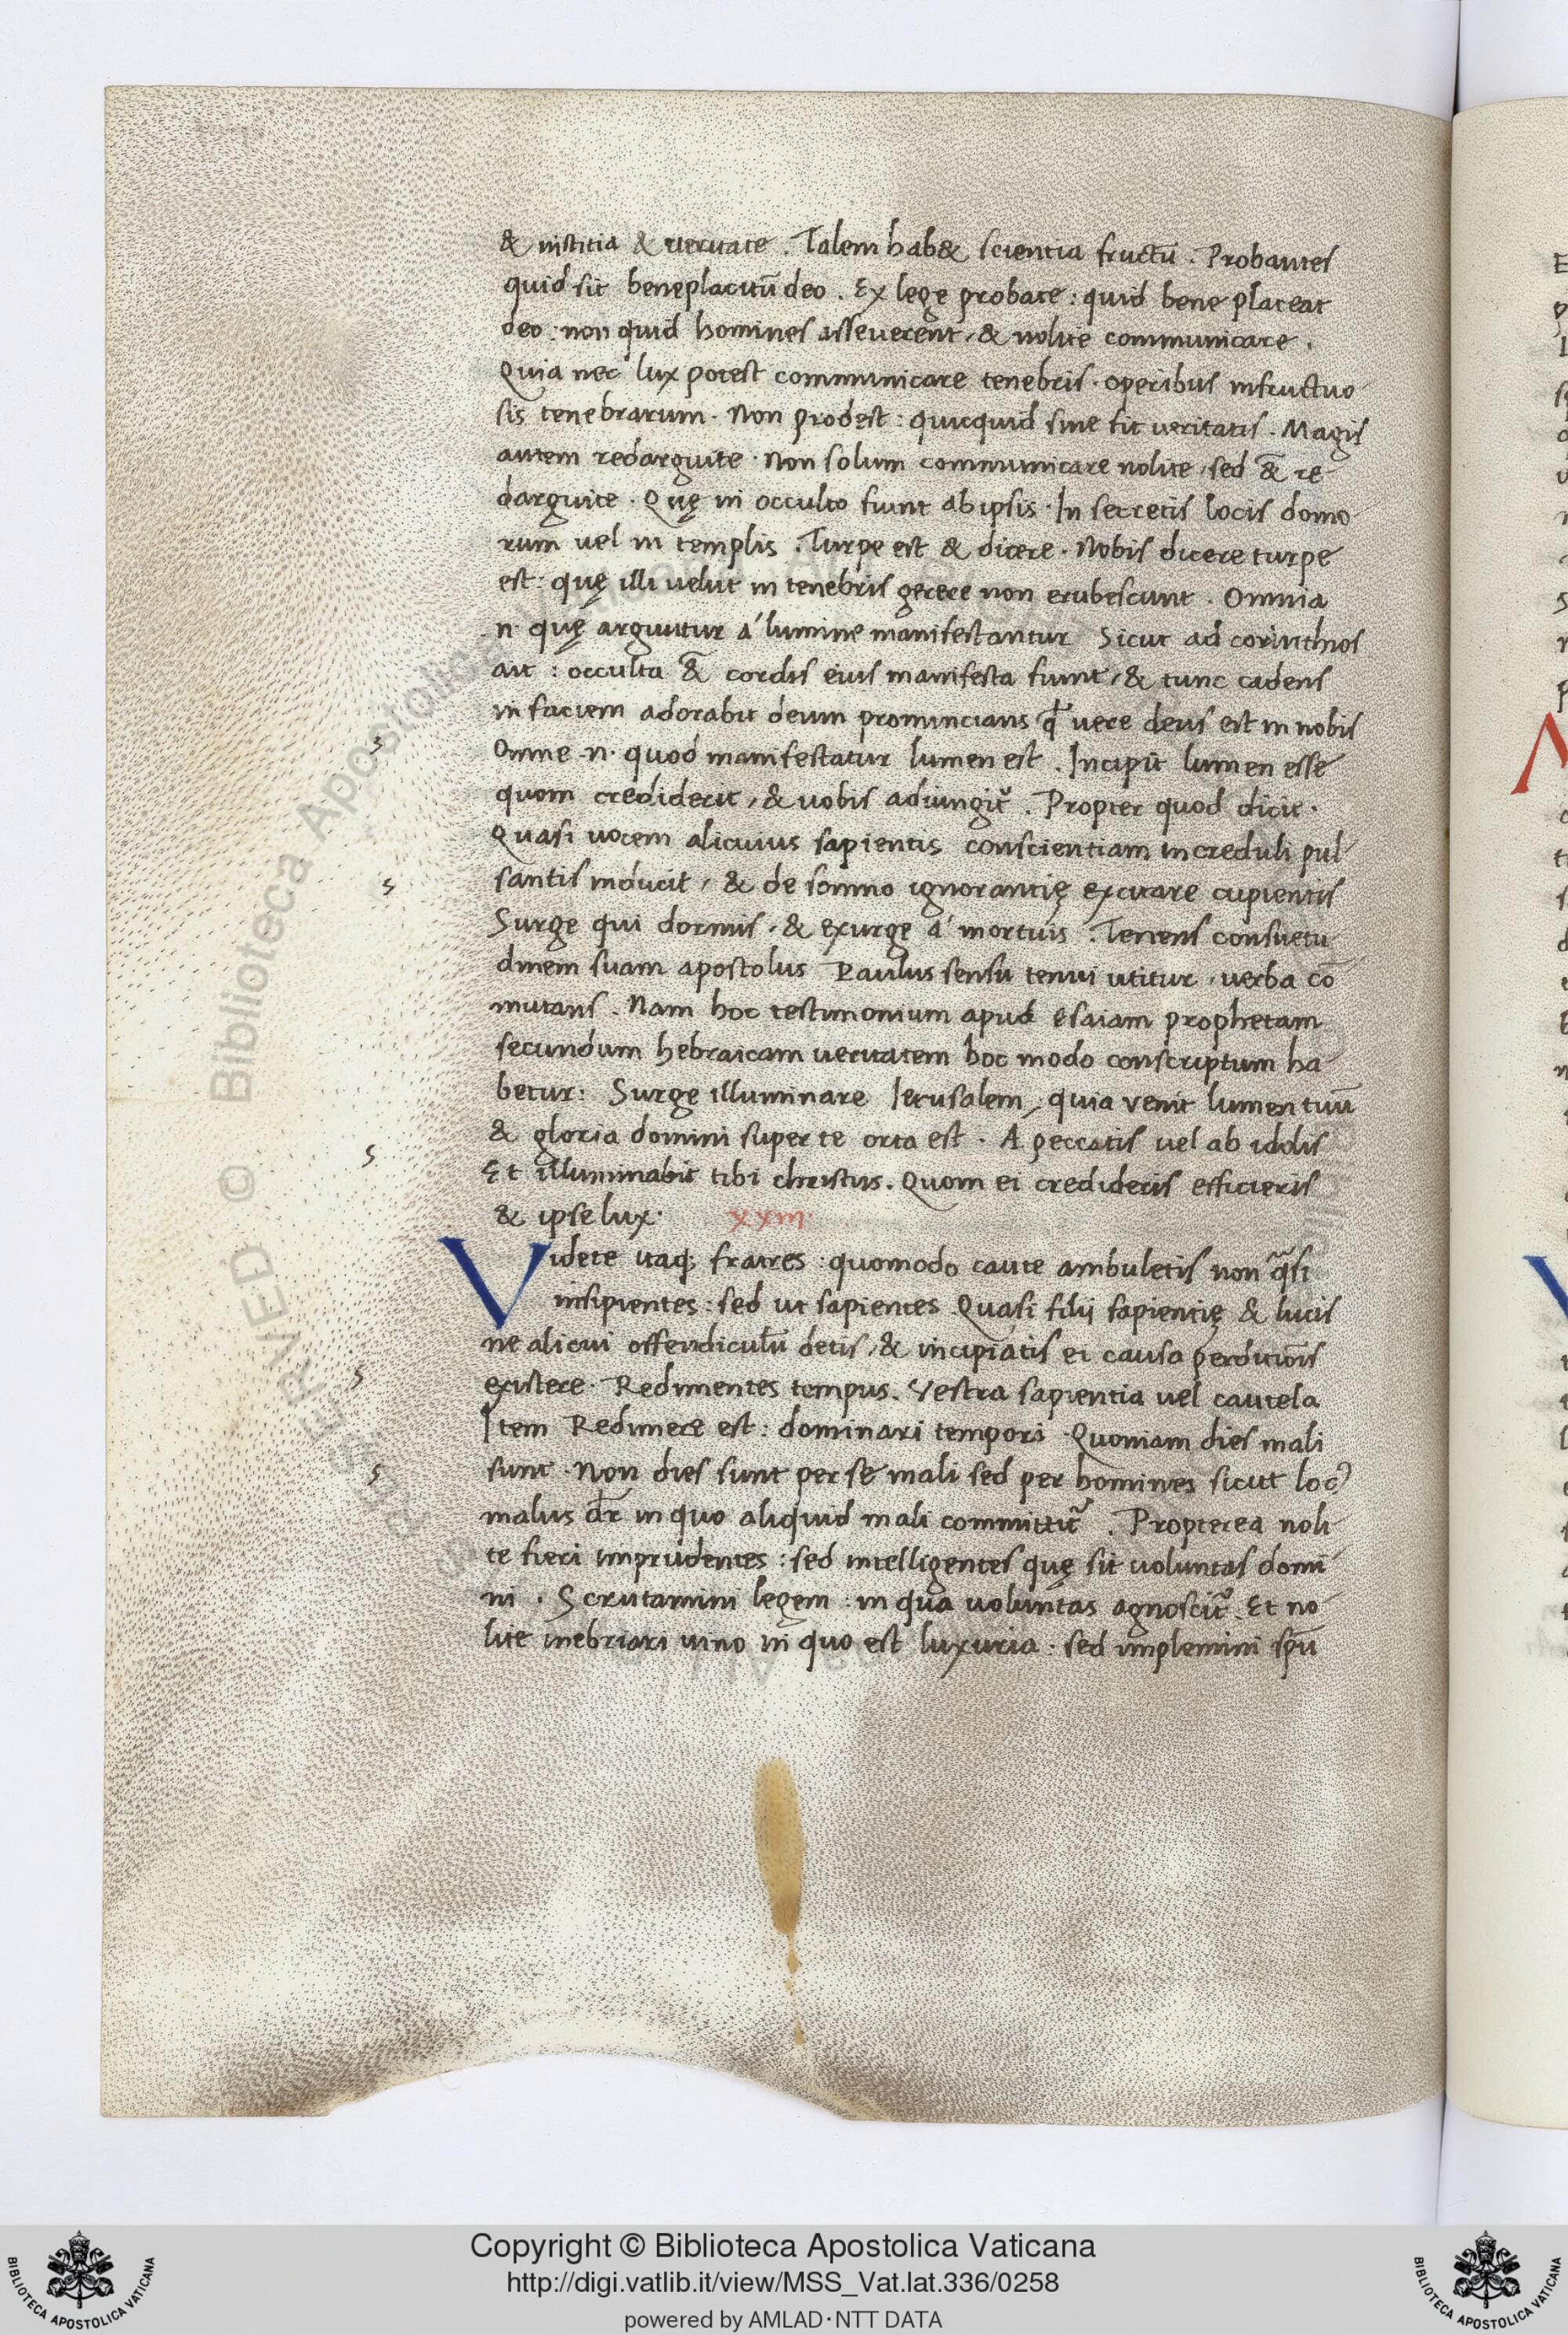 & iustitia & ueritate . Talem hab& scientia fructū . Probantes
quid sit beneplacitū deo . Ex lege probate : quid bene placeat
deo : non quid homines asseuerent , & nolite communicare .
Quia nec lux potest communicare tenebris . operibus infructuo
sis tenebrarum . Non prodest : quicquid sine fit ueritatis . Magis
autem redarguite . Non solum communicare nolite , sed &̄ re
darguite . Quę in occulto fiunt ab ipsis . In secretis locis domo
rum uel in templis . Turpe est & dicere . Nobis dicere turpe
est : quę illi uelut in tenebris gerere non erubescunt . Omnia
.n. quę arguutur á lumine manifestantur Sicut ad corinthios
ait : occulta &̄ cordis eius manifesta fiunt , & tunc cadens
in faciem adorabit deum pronuncians ꝙ vere deus est in nobis
Omne .n. quod manifestatur lumen est . Incipit lumen esse
quom crediderit , & uobis adiungit᷑ . Propter quod dicit .
Quasi uocem alicuius sapientis conscientiam increduli pul
santis inducit , & de somno ignorantię excitare cupientis
Surge qui dormis , & exurge á mortuis . Tenens consuetu
dinem suam apostolus Paulus sensu tenui utitur , uerba cō
mutans . Nam hoc testimonium apud esaiam prophetam
secundum hebraicam ueritatem hoc modo conscriptum ha
betur : Surge illuminare Ierusalem , quia venit lumen tuū
& gloria domini super te orta est . A peccatis uel ab idolis
Et illuminabit tibi christus . Quom ei credideris efficieris
& ipse lux . xxiii .
Videte itaq; fratres : quomodo caute ambuletis non q̄si
insipientes : sed ut sapientes Quasi filij sapientię & lucis
ne alicui offendiculū detis , & incipiatis ei causa perditiōis
existere . Redimentes tempus . Vestra sapientia uel cautela
Item Redimere est : dominari tempori . Quoniam dies mali
sunt . Non dies sunt per se mali sed per homines sicut locꝰ
malus dr̄ in quo aliquid mali committit᷑ . Propterea noli
te fieri imprudentes : sed intelligentes quę sit uoluntas domi
ni . Scrutamini legem : in qua uoluntas agnoscit᷑ . Et no
lite inebriari uino in quo est luxuria . sed implemini spū
Copyright © Biblioteca Apostolica Vaticana
http://digi.vatlib.it/view/MSS_Vat.lat.336/0258
powered by AMLAD·NTT DATA
BIBLIOTECA APOSTOLICA VATICANA
BIBLIOTECA APOSTOLICA VATICANA